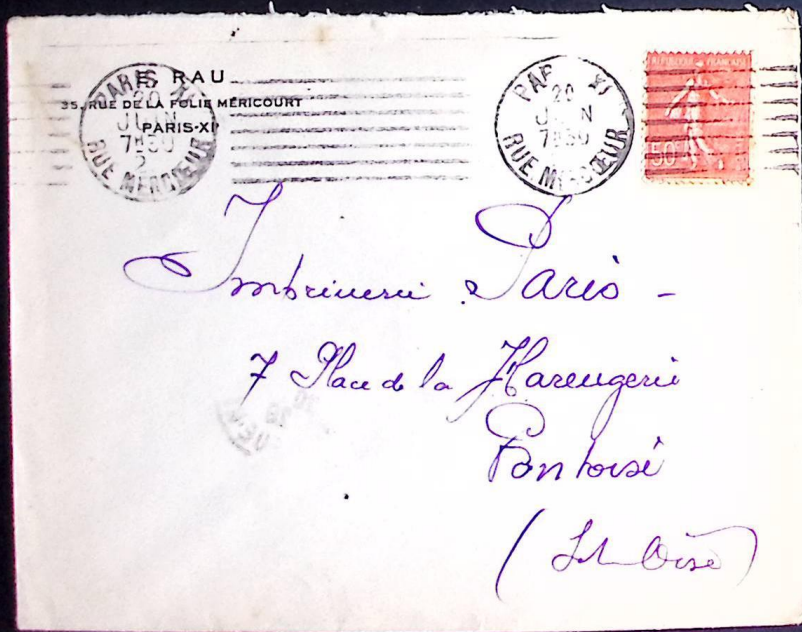 E. RAU
35, RUE DE LA FOLIE MÉRICOURT
PARIS-XI
PARIS XI
20
JUIN
7H30
2
RUE MERCŒUR
PAR XI
20
JUIN
7H30
RUE MERCŒUR
REPUBLIQUE FRANÇAISE
50
Imprimerie Paris -
7 Place de la Harengerie
Pontoise
(S et Oise)